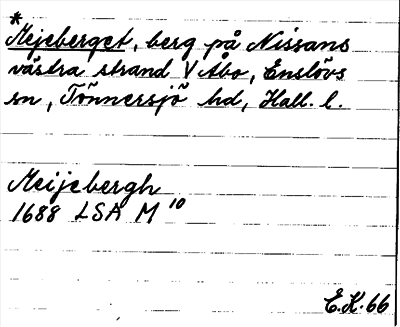 *
Mejeberget, berg på Nissans
västra strand V Åbo, Enslövs
sn, Tönnersjö hd, Hall. l.
Meijebergh
1688 LSA M 10
E.K. 66